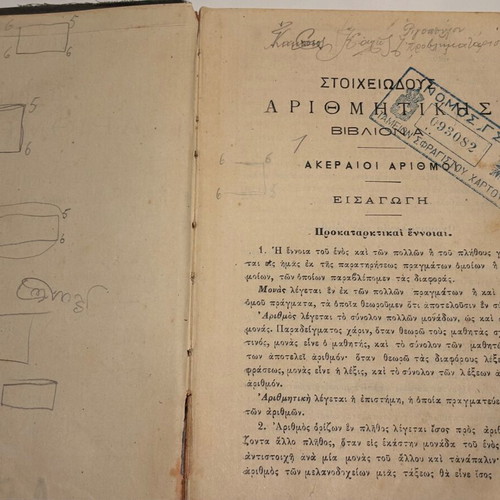 5
6
6
5
6
6
5
6
6
1
ΣΤΟΙΧΕΙΩΔΟΥΣ
ΑΡΙΘΜΗΤΙΚΗΣ
ΒΙΒΛΙΟΝ Α
ΝΟΜΟΣ
093082
ΣΦΡΑΓΙΣΤΟΥ ΧΑΡΤΟΥ
ΑΚΕΡΑΙΟΙ ΑΡΙΘΜΟ
ΕΙΣΑΓΩΓΗ
Προκαταρκτικαὶ ἔννοιαι.
1. Ἡ ἔννοια τοῦ ἑνὸς καὶ τῶν πολλῶν ἢ τοῦ πλήθους γ
ται εἰς ἡμᾶς ἐκ τῆς παρατηρήσεως πραγμάτων ὁμοίων ἢ
μοίων, τῶν ὁποίων παραβλέπομεν τὰς διαφοράς.
Μονὰς λέγεται ἓν ἐκ τῶν πολλῶν πραγμάτων ἢ καὶ
ὁμοῦ πράγματα, τὰ ὁποῖα θεωροῦμεν ὅτι ἀποτελοῦσιν ἓν σ
Ἀριθμὸς λέγεται τὸ σύνολον πολλῶν μονάδων, ὡς καὶ
μονάς. Παραδείγματος χάριν, ὅταν θεωρῶ τοὺς μαθητὰς σχ
τινός, μονὰς εἶνε ὁ μαθητής, καὶ τὸ σύνολον τῶν μαθητῶ
των ἀποτελεῖ ἀριθμόν· ὅταν θεωρῶ τὰς διαφόρους λέξε
φράσεως, μονὰς εἶνε ἡ λέξις, καὶ τὸ σύνολον τῶν λέξεων ἀ
ἀριθμόν.
Ἀριθμητικὴ λέγεται ἡ ἐπιστήμη, ἡ ὁποία πραγματεύε
τῶν ἀριθμῶν.
2. Ἀριθμὸς ὁρίζων ἓν πλῆθος λέγεται ἴσος πρὸς ἀριθ
ζοντα ἄλλο πλῆθος, ὅταν εἰς ἑκάστην μονάδα τοῦ ἑνὸ
ἀντιστοιχῇ ἀνὰ μία μονὰς τοῦ ἄλλου καὶ τἀνάπαλιν·
ἀριθμὸς τῶν μελανοδοχείων μιᾶς τάξεως θὰ εἶνε ἴσος